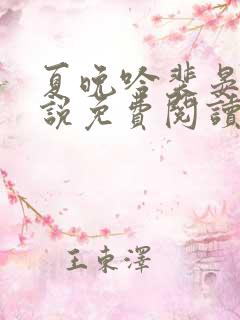 夏晚吟裴晟
說免費閱讀
王東澤